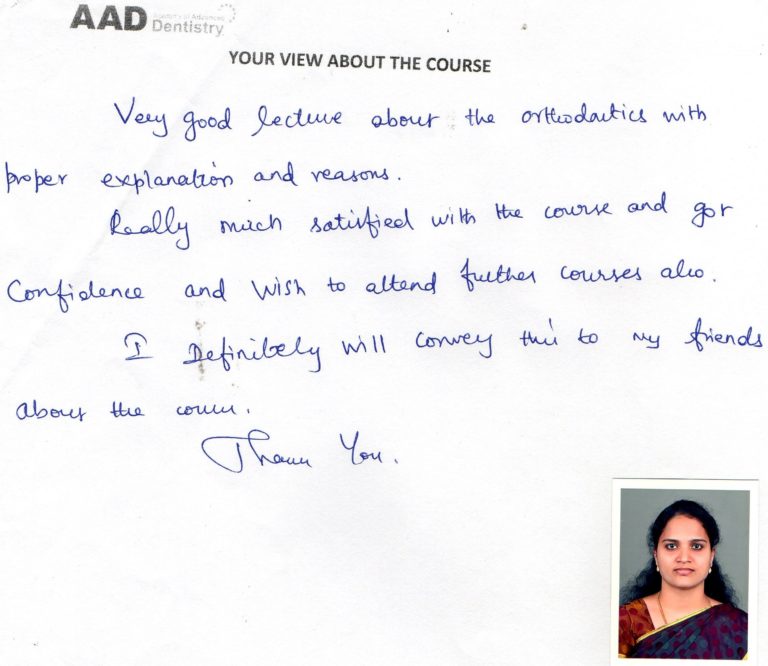 AAD Academy of Advanced
Dentistry
YOUR VIEW ABOUT THE COURSE
Very good lecture about the orthodontics with
proper explanation and reasons.
Really much satisfied with the course and got
Confidence and wish to attend further courses also.
I Definitely will convey this to my friends
about the course.
Thank You.